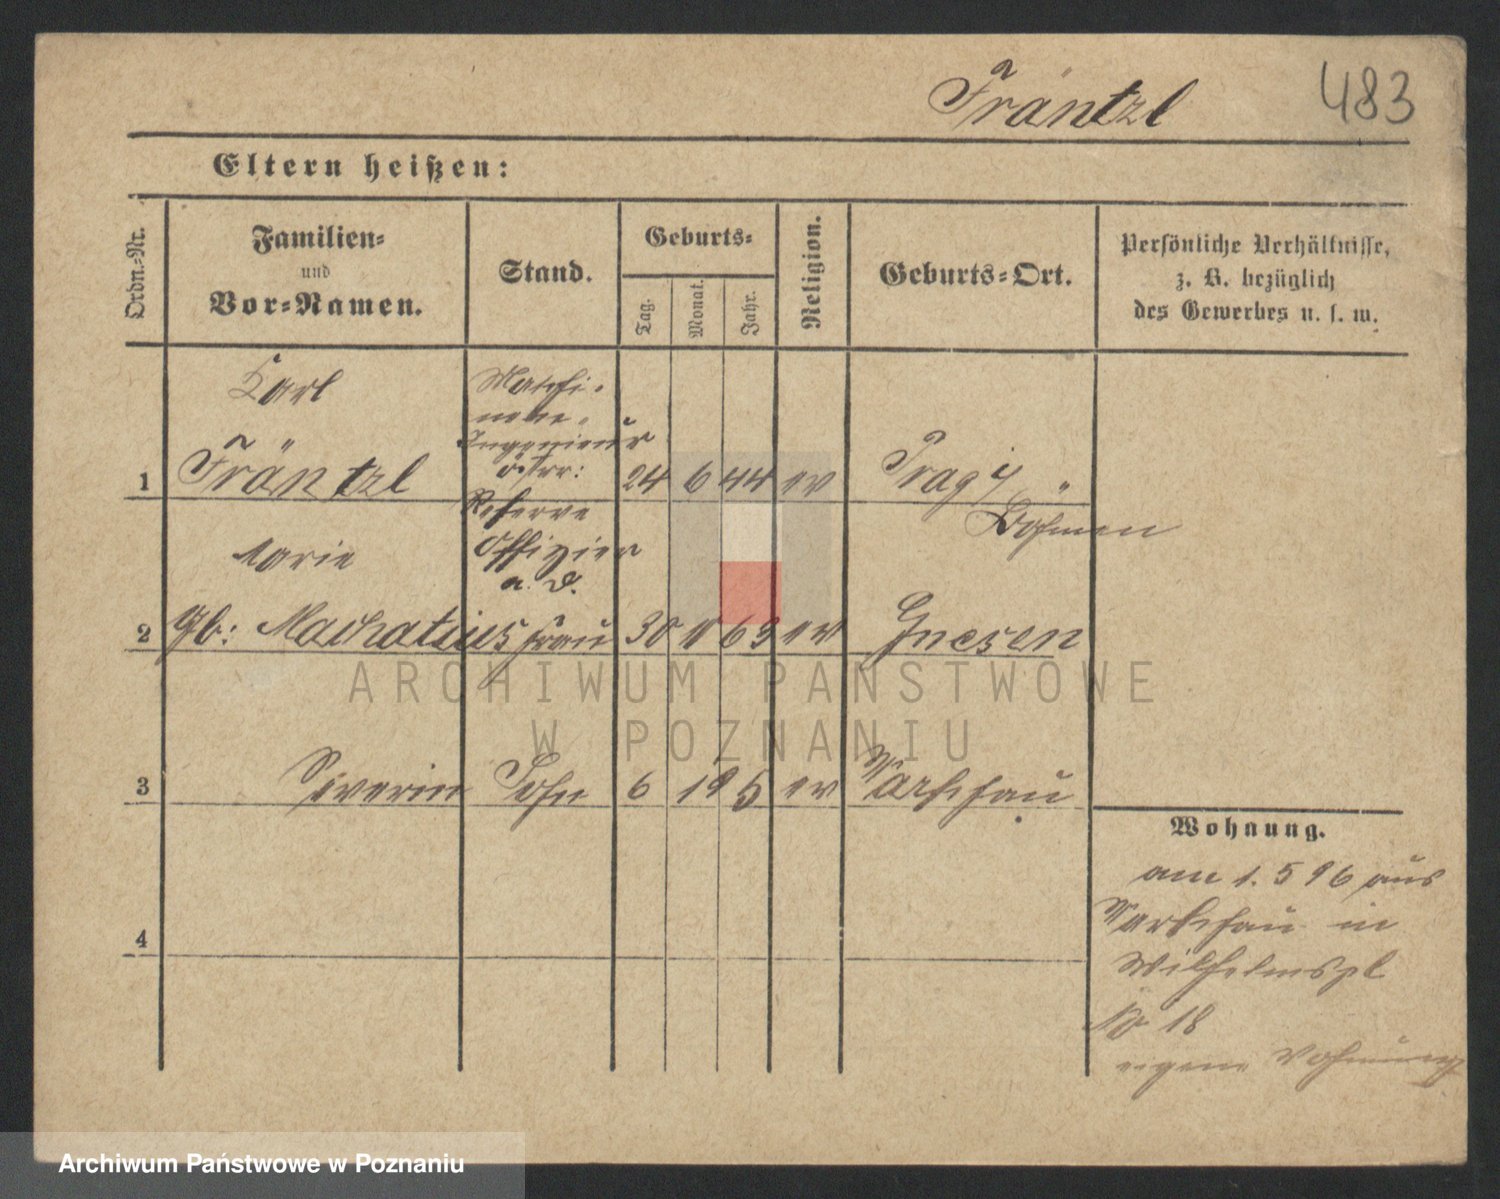 Fräntzl
483
Eltern heißen:
Ordn.-Nr.
Familien-
und
Vor-Namen.
Stand.
Geburts-
Tag.
Monat.
Jahr.
Religion.
Geburts-Ort.
Persönliche Verhältnisse,
z. B. bezüglich
des Gewerbes u. s. w.
Karl
Maschi-
nen-
Ingenieur
1 Fräntzl östrr: 24 6 44 ev Prag i/
Reserve
Böhmen
Marie
Offizier
a. D.
2 gb: Machatius Frau 30 63 ev Gnesen
ARCHIWUM PAŃSTWOWE
W POZNANIU
3 Severin Sohn 6 ev Warschau
Wohnung.
am 1. 5 96 aus
Warschau in
4
Wilhelmspl
No 18
eigene Wohnung
Archiwum Państwowe w Poznaniu